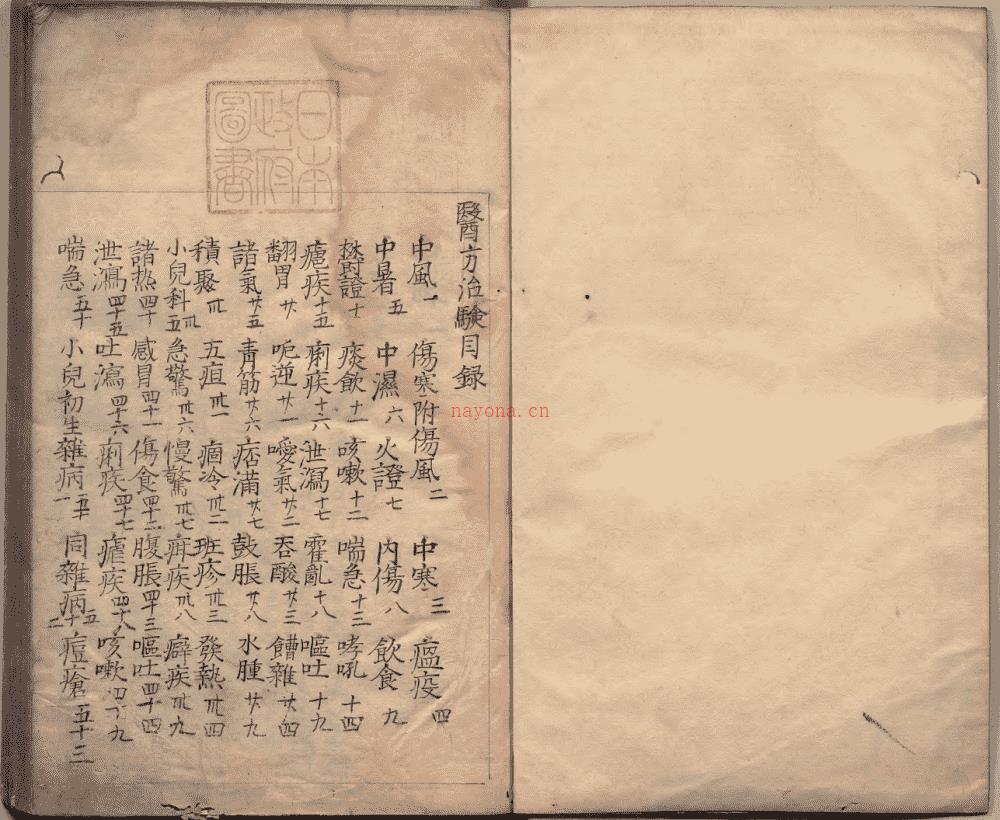 日本
政府
圖書
醫方治験目録
中風一 傷寒附傷風二 中寒三 瘟疫四
中暑五 中濕六 火證七 内傷八 飲食九
欝證十 痰飲十一 咳嗽十二 喘急十三 哮吼十四
瘧疾十五 痢疾十六 泄瀉十七 霍亂十八 嘔吐十九
翻胃廿 呃逆廿一 噯氣廿二 吞酸廿三 饐雜廿四
諸氣廿五 青筋廿六 痞滿廿七 鼓脹廿八 水腫廿九
積聚卅 五疸卅一 痼冷卅二 斑疹卅三 發熱卅四
小兒科卅五 急驚卅六 慢驚卅七 疳疾卅八 癖疾卅九
諸热四十 感冒四十一 傷食四十二 腹脹四十三 嘔吐四十四
泄瀉四十五 吐瀉四十六 痢疾四十七 瘧疾四十八 咳嗽四十九
喘急五十 小兒初生雜病五十一 同雜病五十二 痘瘡五十三
nayona.cn